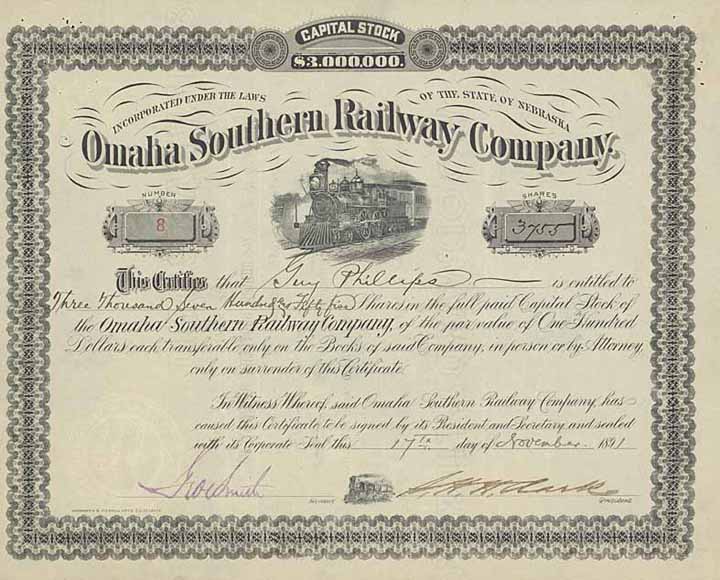 CAPITAL STOCK
$3,000,000.
INCORPORATED UNDER THE LAWS OF THE STATE OF NEBRASKA
Omaha Southern Railway Company.
NUMBER
8
SHARES
3755
This Certifies that Guy Phillips is entitled to
Three Thousand Seven Hundred & Fifty five Shares in the full paid Capital Stock of
the Omaha Southern Railway Company, of the par value of One Hundred
Dollars each transferable only on the Books of said Company, in person or by Attorney,
only on surrender of this Certificate.
In Witness Whereof, said Omaha Southern Railway Company, has
caused this Certificate to be signed by its President and Secretary and sealed
with its Corporate Seal this 17th day of November 1891
Smith
S.H.H. Clark
PRESIDENT